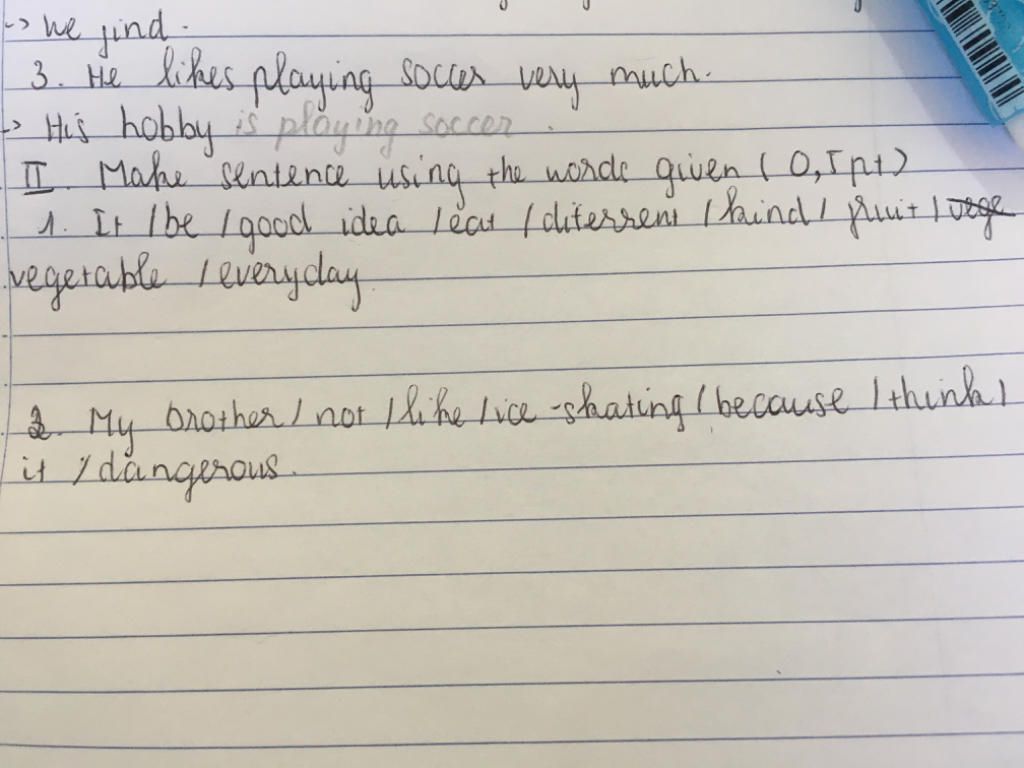 -> We find.
3. He likes playing soccer very much.
-> His hobby is playing soccer.
II. Make sentence using the words given (0,5pt)
1. It /be /good idea /eat /different /kind / fruit / vege
vegetable /everyday
2. My brother / not / like / ice-skating / because / think /
it / dangerous.